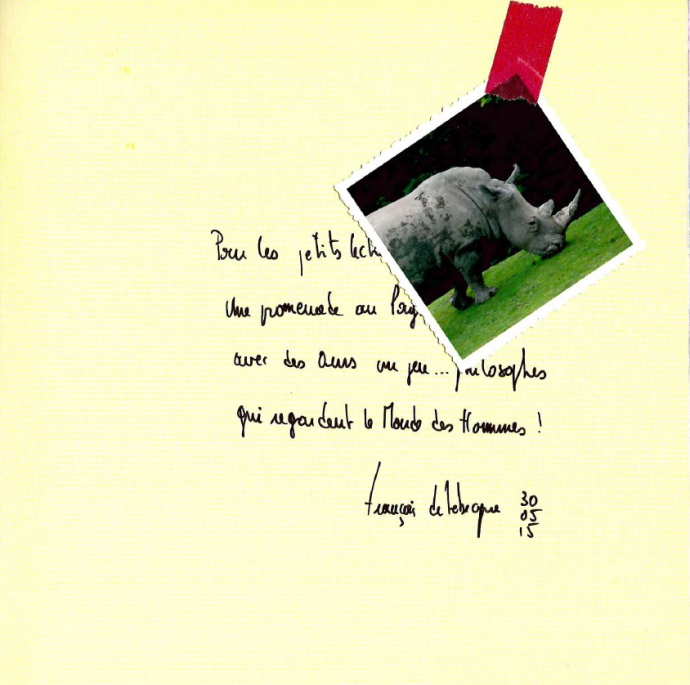 Pour les petits lect
Une promenade au Pay
avec des un peu... philosophes
qui regardent le Monde des Hommes !
François delebecque 30
05
15